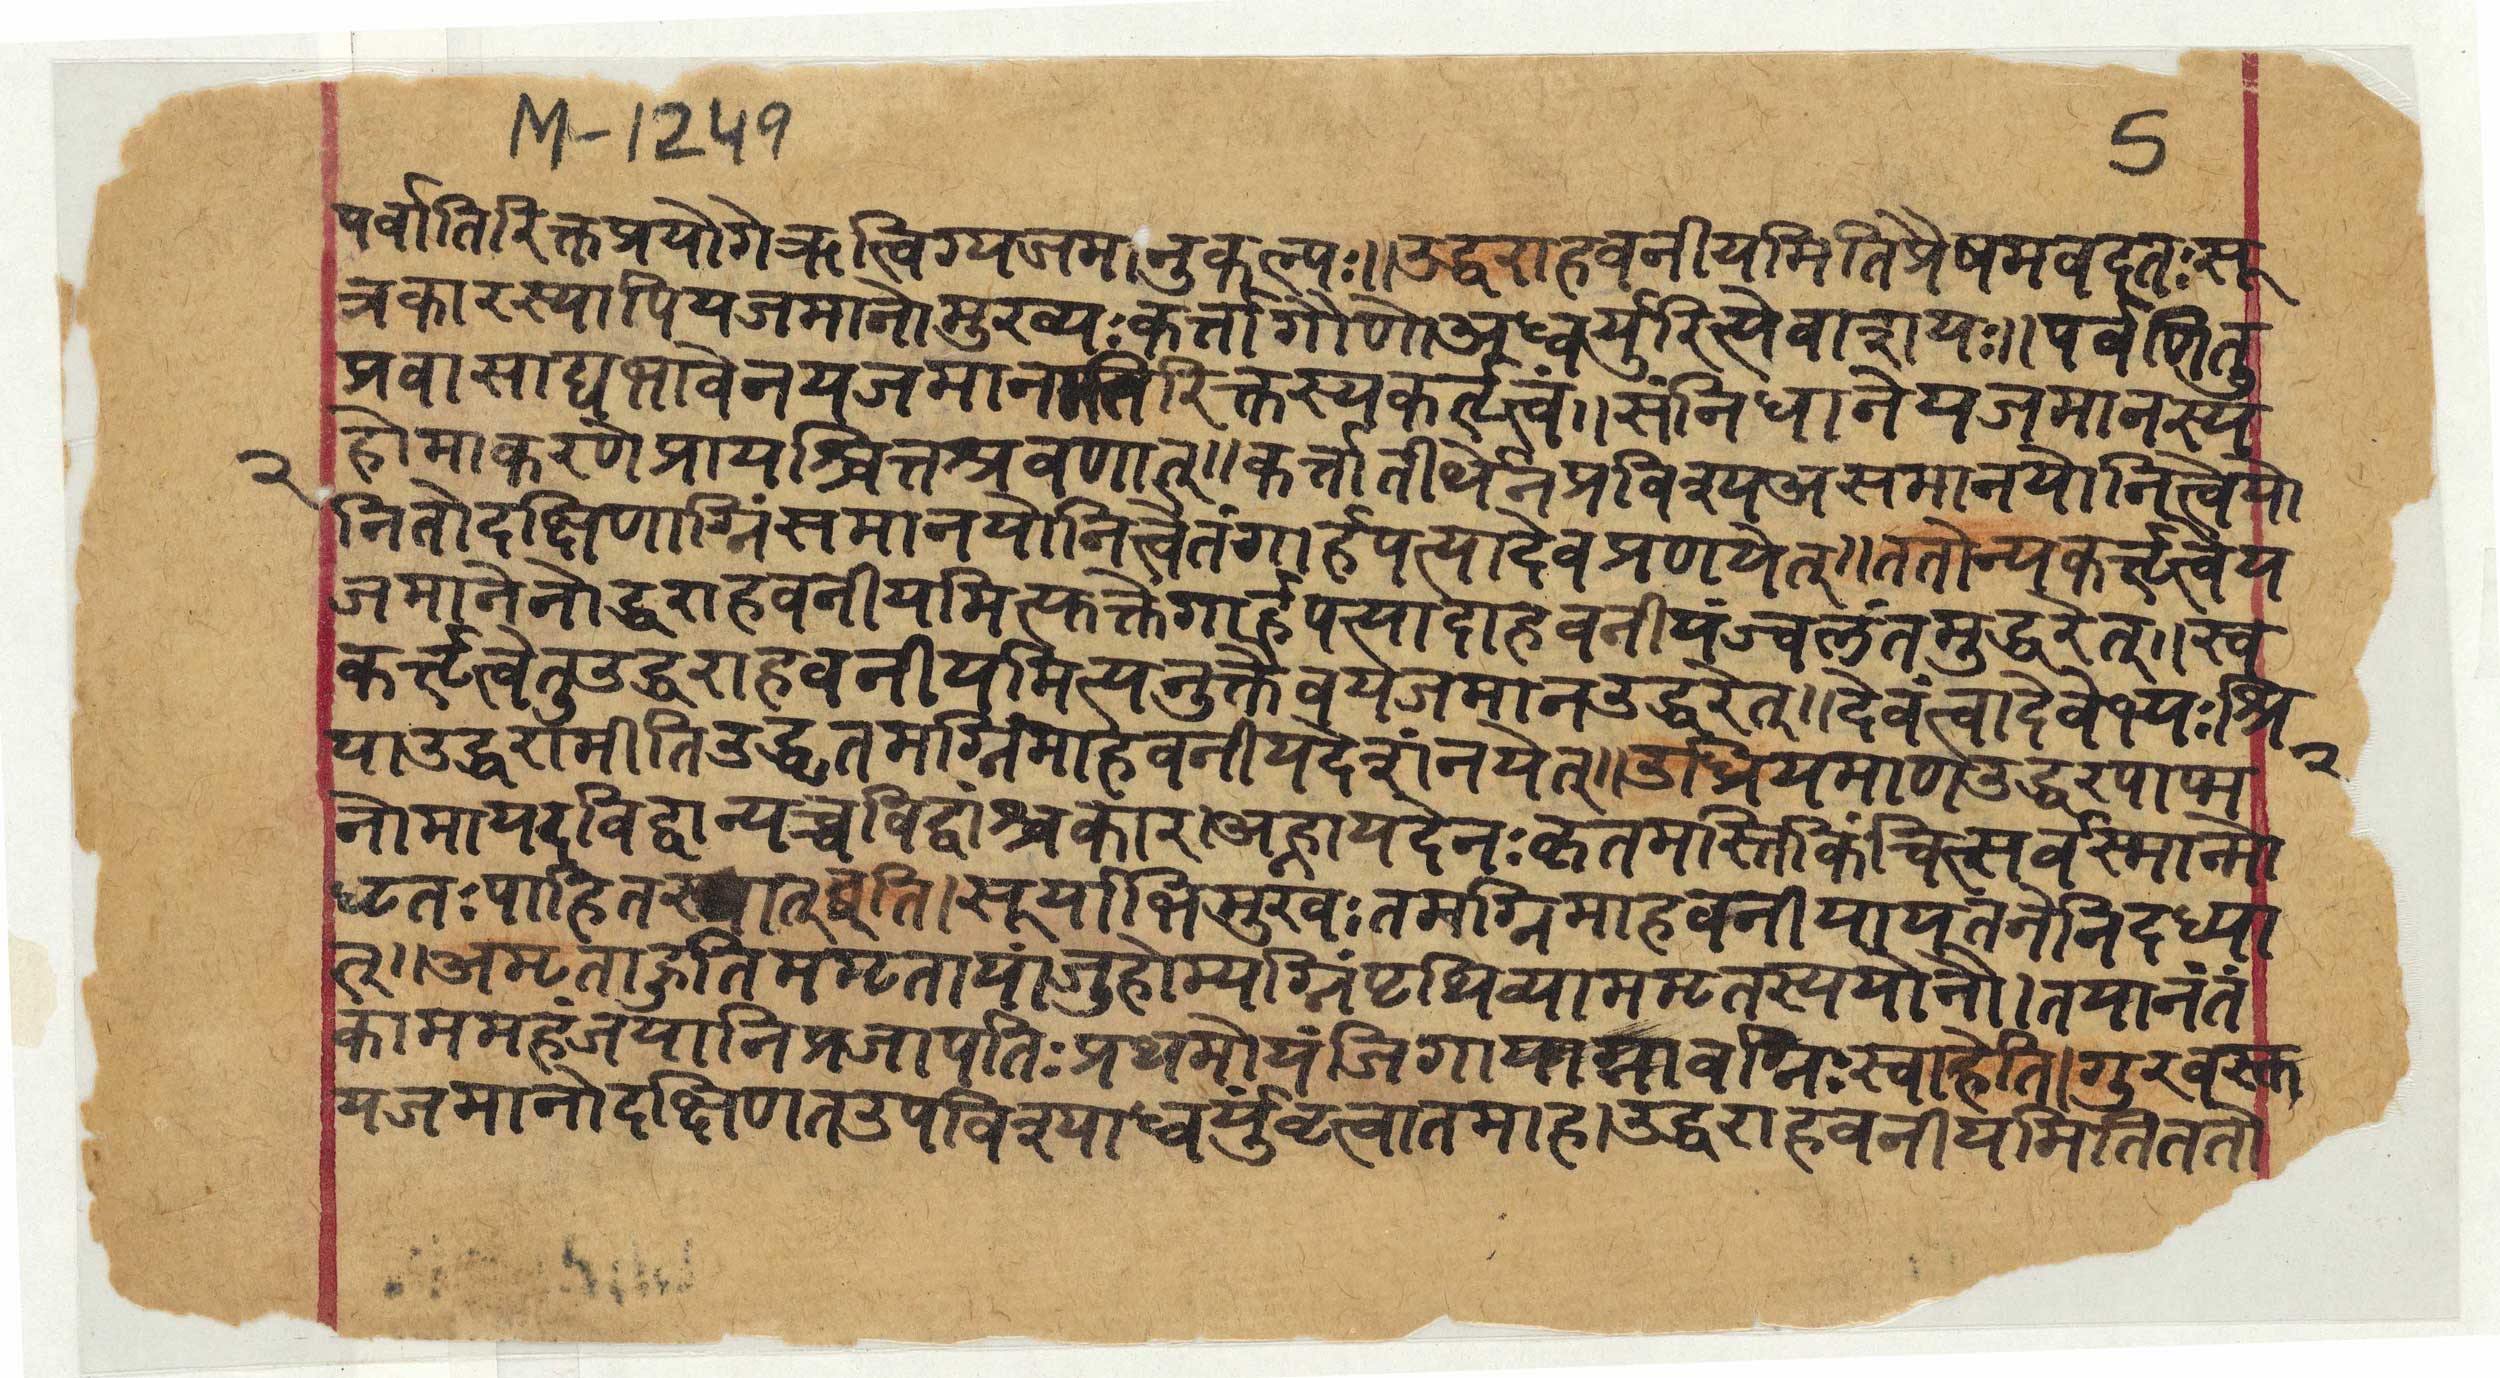 M-1249
5
पर्वातिरिक्तप्रयोगेऋत्विग्यजमानुकल्पः॥उद्धराहवनीयमितिप्रैषमवदतःसू
त्रकारस्यापियजमानोमुख्यःकर्त्तागौणोअध्वर्युरित्येवाशयः॥पर्वणितु
प्रवासाद्यभावेनयजमानातिरिक्तस्यकर्तृत्वं॥संनिधानेयजमानस्य
होमाकरणेप्रायश्चित्तश्रवणात्॥कर्त्तातीर्थेनप्रविश्यअसमानयोनित्वेयो
२
नितोदक्षिणाग्निंसमानयोनित्वेतंगार्हपत्यादेवप्रणयेत्॥ततोन्यकर्त्तृत्वेय
जमानेनोद्धराहवनीयमित्युक्तेगार्हपत्यादाहवनीयंज्वलंतमुद्धरेत्॥स्व
कर्त्तृत्वेतुउद्धराहवनीयमित्यनुक्तैवयजमानउद्धरेत्॥देवंत्वादेवेभ्यःश्रि
याउद्धरामीतिउद्धृतमग्निमाहवनीयदेशंनयेत्॥उध्रियमाणउद्धरपाप्म
२
नोमायदविद्वान्यच्चविद्वांश्चकार।अह्नायदेनःकृतमस्तिकिंचित्सर्वस्मान्मो
धृतःपाहितस्मात्
सूर्याभिमुखःतमग्निमाहवनीयायतनेनिदध्या
त्॥अमृताहुतिममृतायांजुहोम्यग्निंपृथिव्याममृतस्ययोनौ।तयानंतं
काममहंजयानिप्रजापतिःप्रथमोयंजिगायाग्नावग्निःस्वाहेति।गुरवस्तु
यजमानोदक्षिणतउपविश्याध्वर्युंवृत्वातमाह।उद्धराहवनीयमितिततो